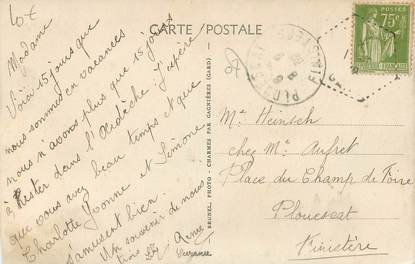 10€
CARTE POSTALE
Madame
Voici 15 jours que
nous sommes en vacances
nous n'avons plus que 15 jours
à rester dans l'Ardèche J'espère
que vous avez beau temps et que
Charlotte Yvonne et Simone
s'amusent bien.
Un souvenir de nous
tous
Renée
BRUNEL, PHOTO - CHARMES PAR GAGNIÈRES (GARD)
FINISTERE
75c
POSTES
FRANÇAISE
Me Heinsch
chez Me Aufret
Place du Champ de Foire
Plouescat
Finistère